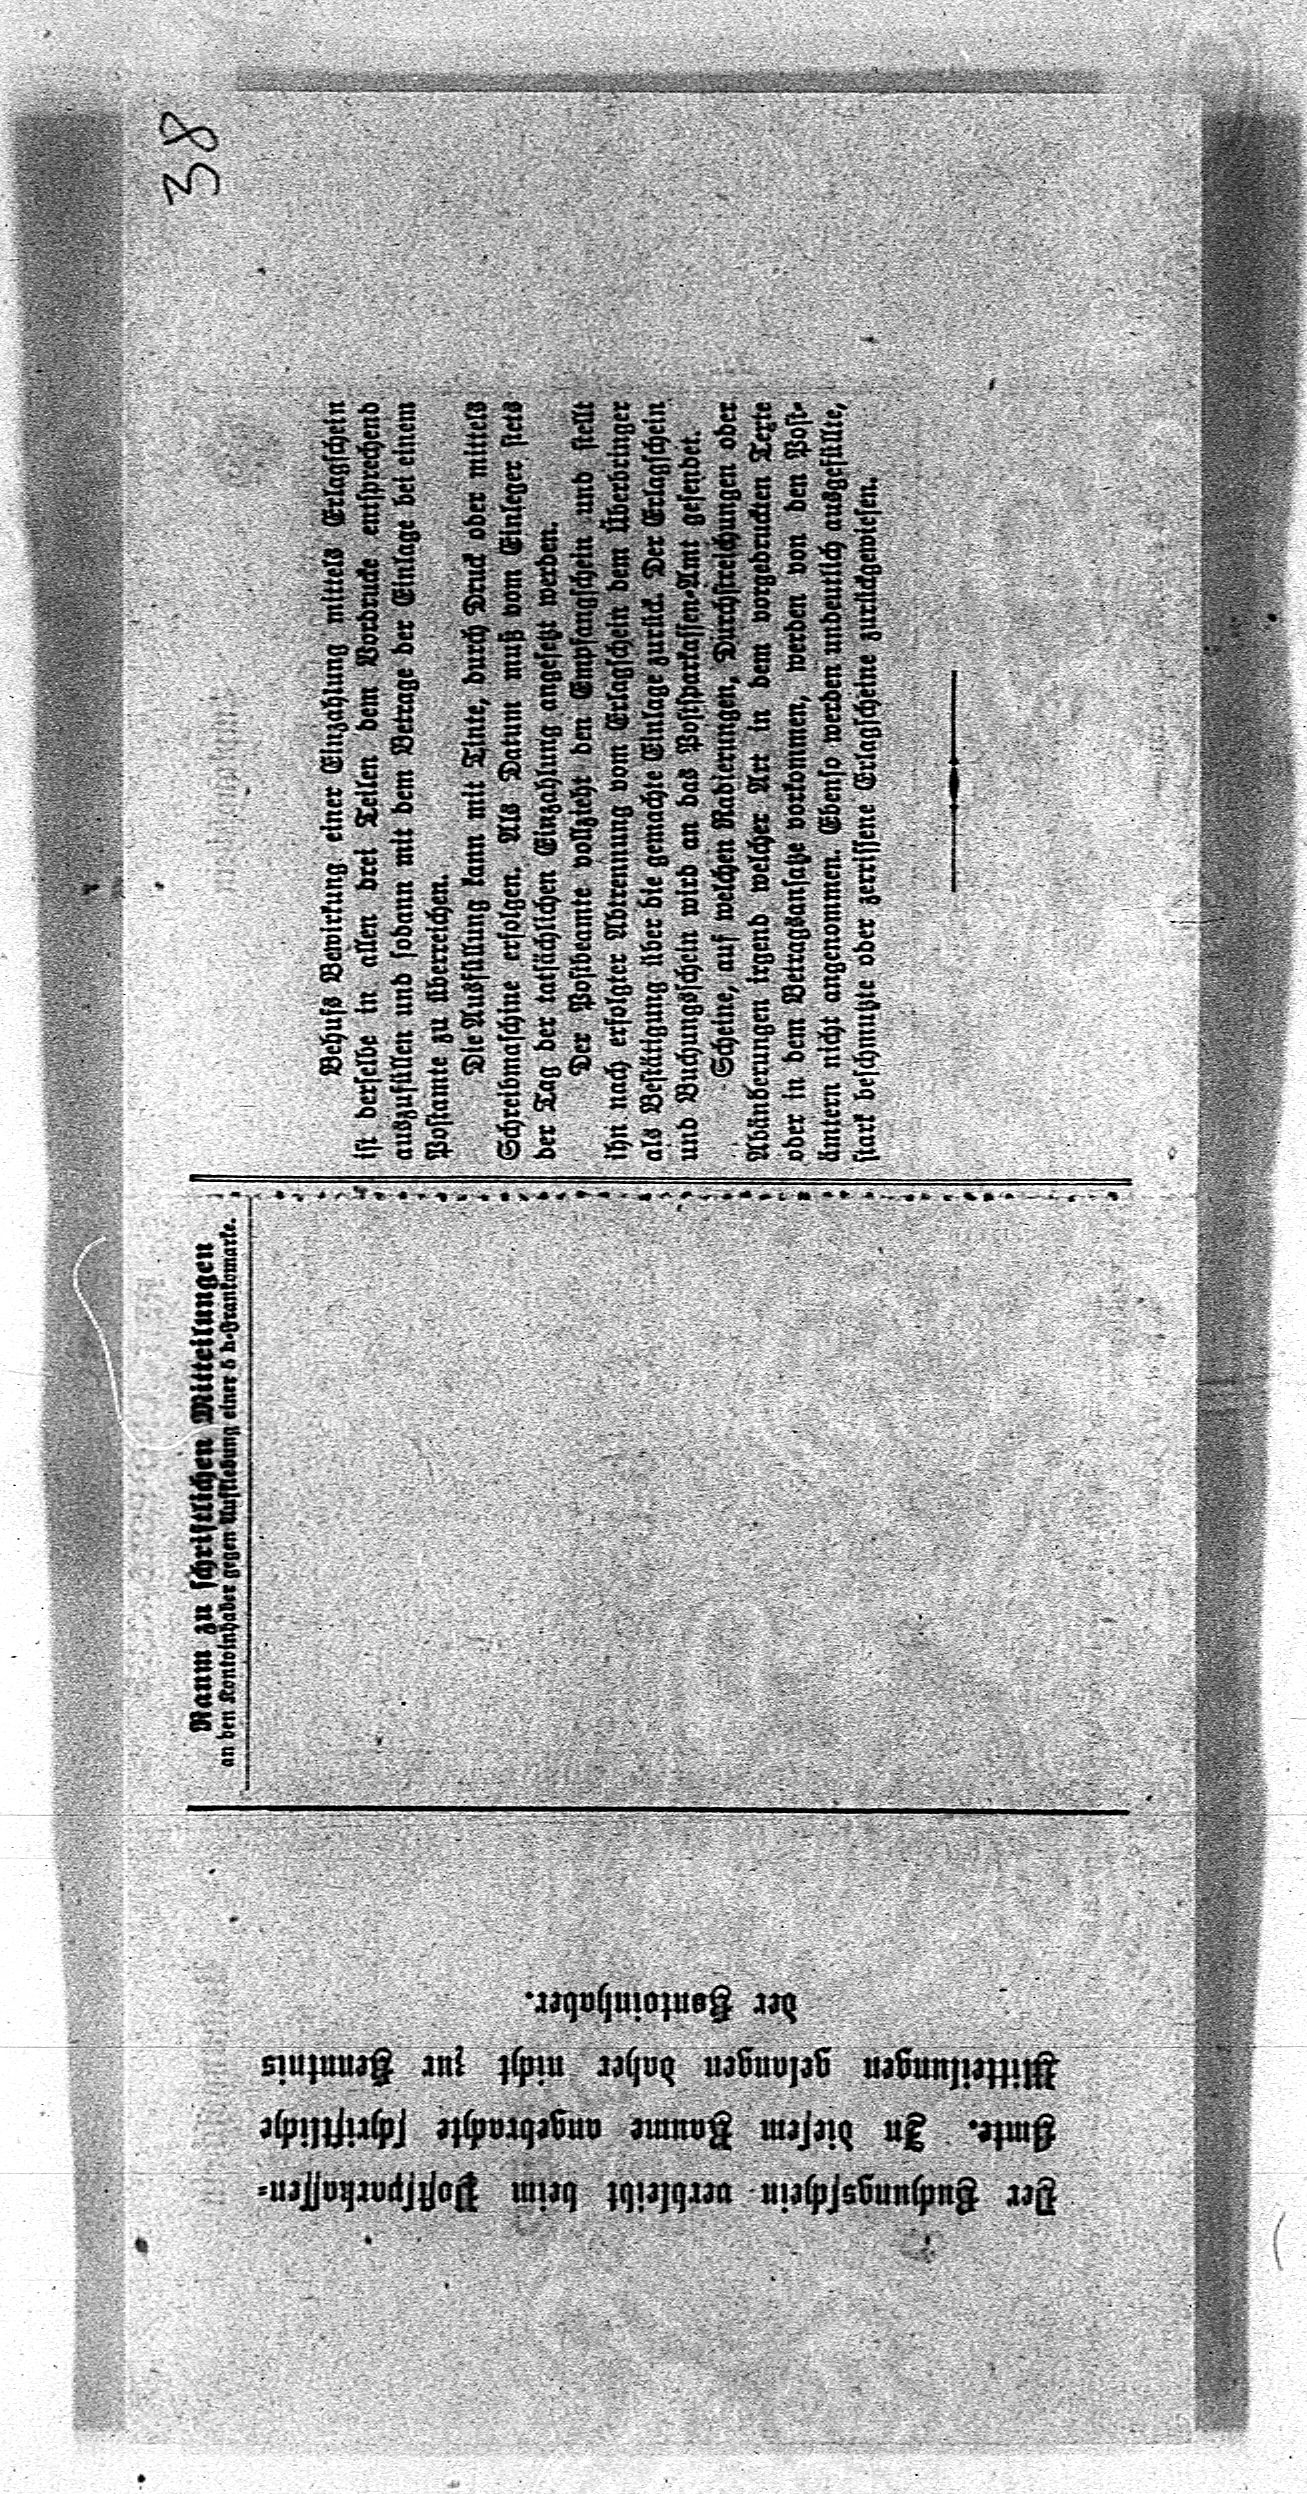 38
Behufs Bewirkung einer Einzahlung mittels Erlagschein
ist derselbe in allen drei Teilen dem Vordrucke entsprechend
auszufüllen und sodann mit dem Betrage der Einlage bei einem
Postamte zu überreichen.
Die Ausfüllung kann mit Tinte, durch Druck oder mittels
Schreibmaschine erfolgen. Als Datum muß vom Einleger stets
der Tag der tatsächlichen Einzahlung angesetzt werden.
Der Postbeamte vollzieht den Empfangschein und stellt
ihn nach erfolgter Abtrennung vom Erlagschein dem Überbringer
als Bestätigung über die gemachte Einlage zurück. Der Erlagschein
und Buchungsschein wird an das Postsparkassen-Amt gesendet.
Scheine, auf welchen Radierungen, Durchstreichungen oder
Abänderungen irgend welcher Art in dem vorgedruckten Texte
oder in dem Betragsansatze vorkommen, werden von den Post-
ämtern nicht angenommen. Ebenso werden undeutlich ausgefüllte,
stark beschmutzte oder zerrissene Erlagscheine zurückgewiesen.
Raum zu schriftlichen Mitteilungen
an den Kontoinhaber gegen Aufklebung einer 5 h-Frankomarke.
Der Buchungsschein verbleibt beim Postsparkassen-
Amte. In diesem Raume angebrachte schriftliche
Mitteilungen gelangen daher nicht zur Kenntnis
der Kontoinhaber.